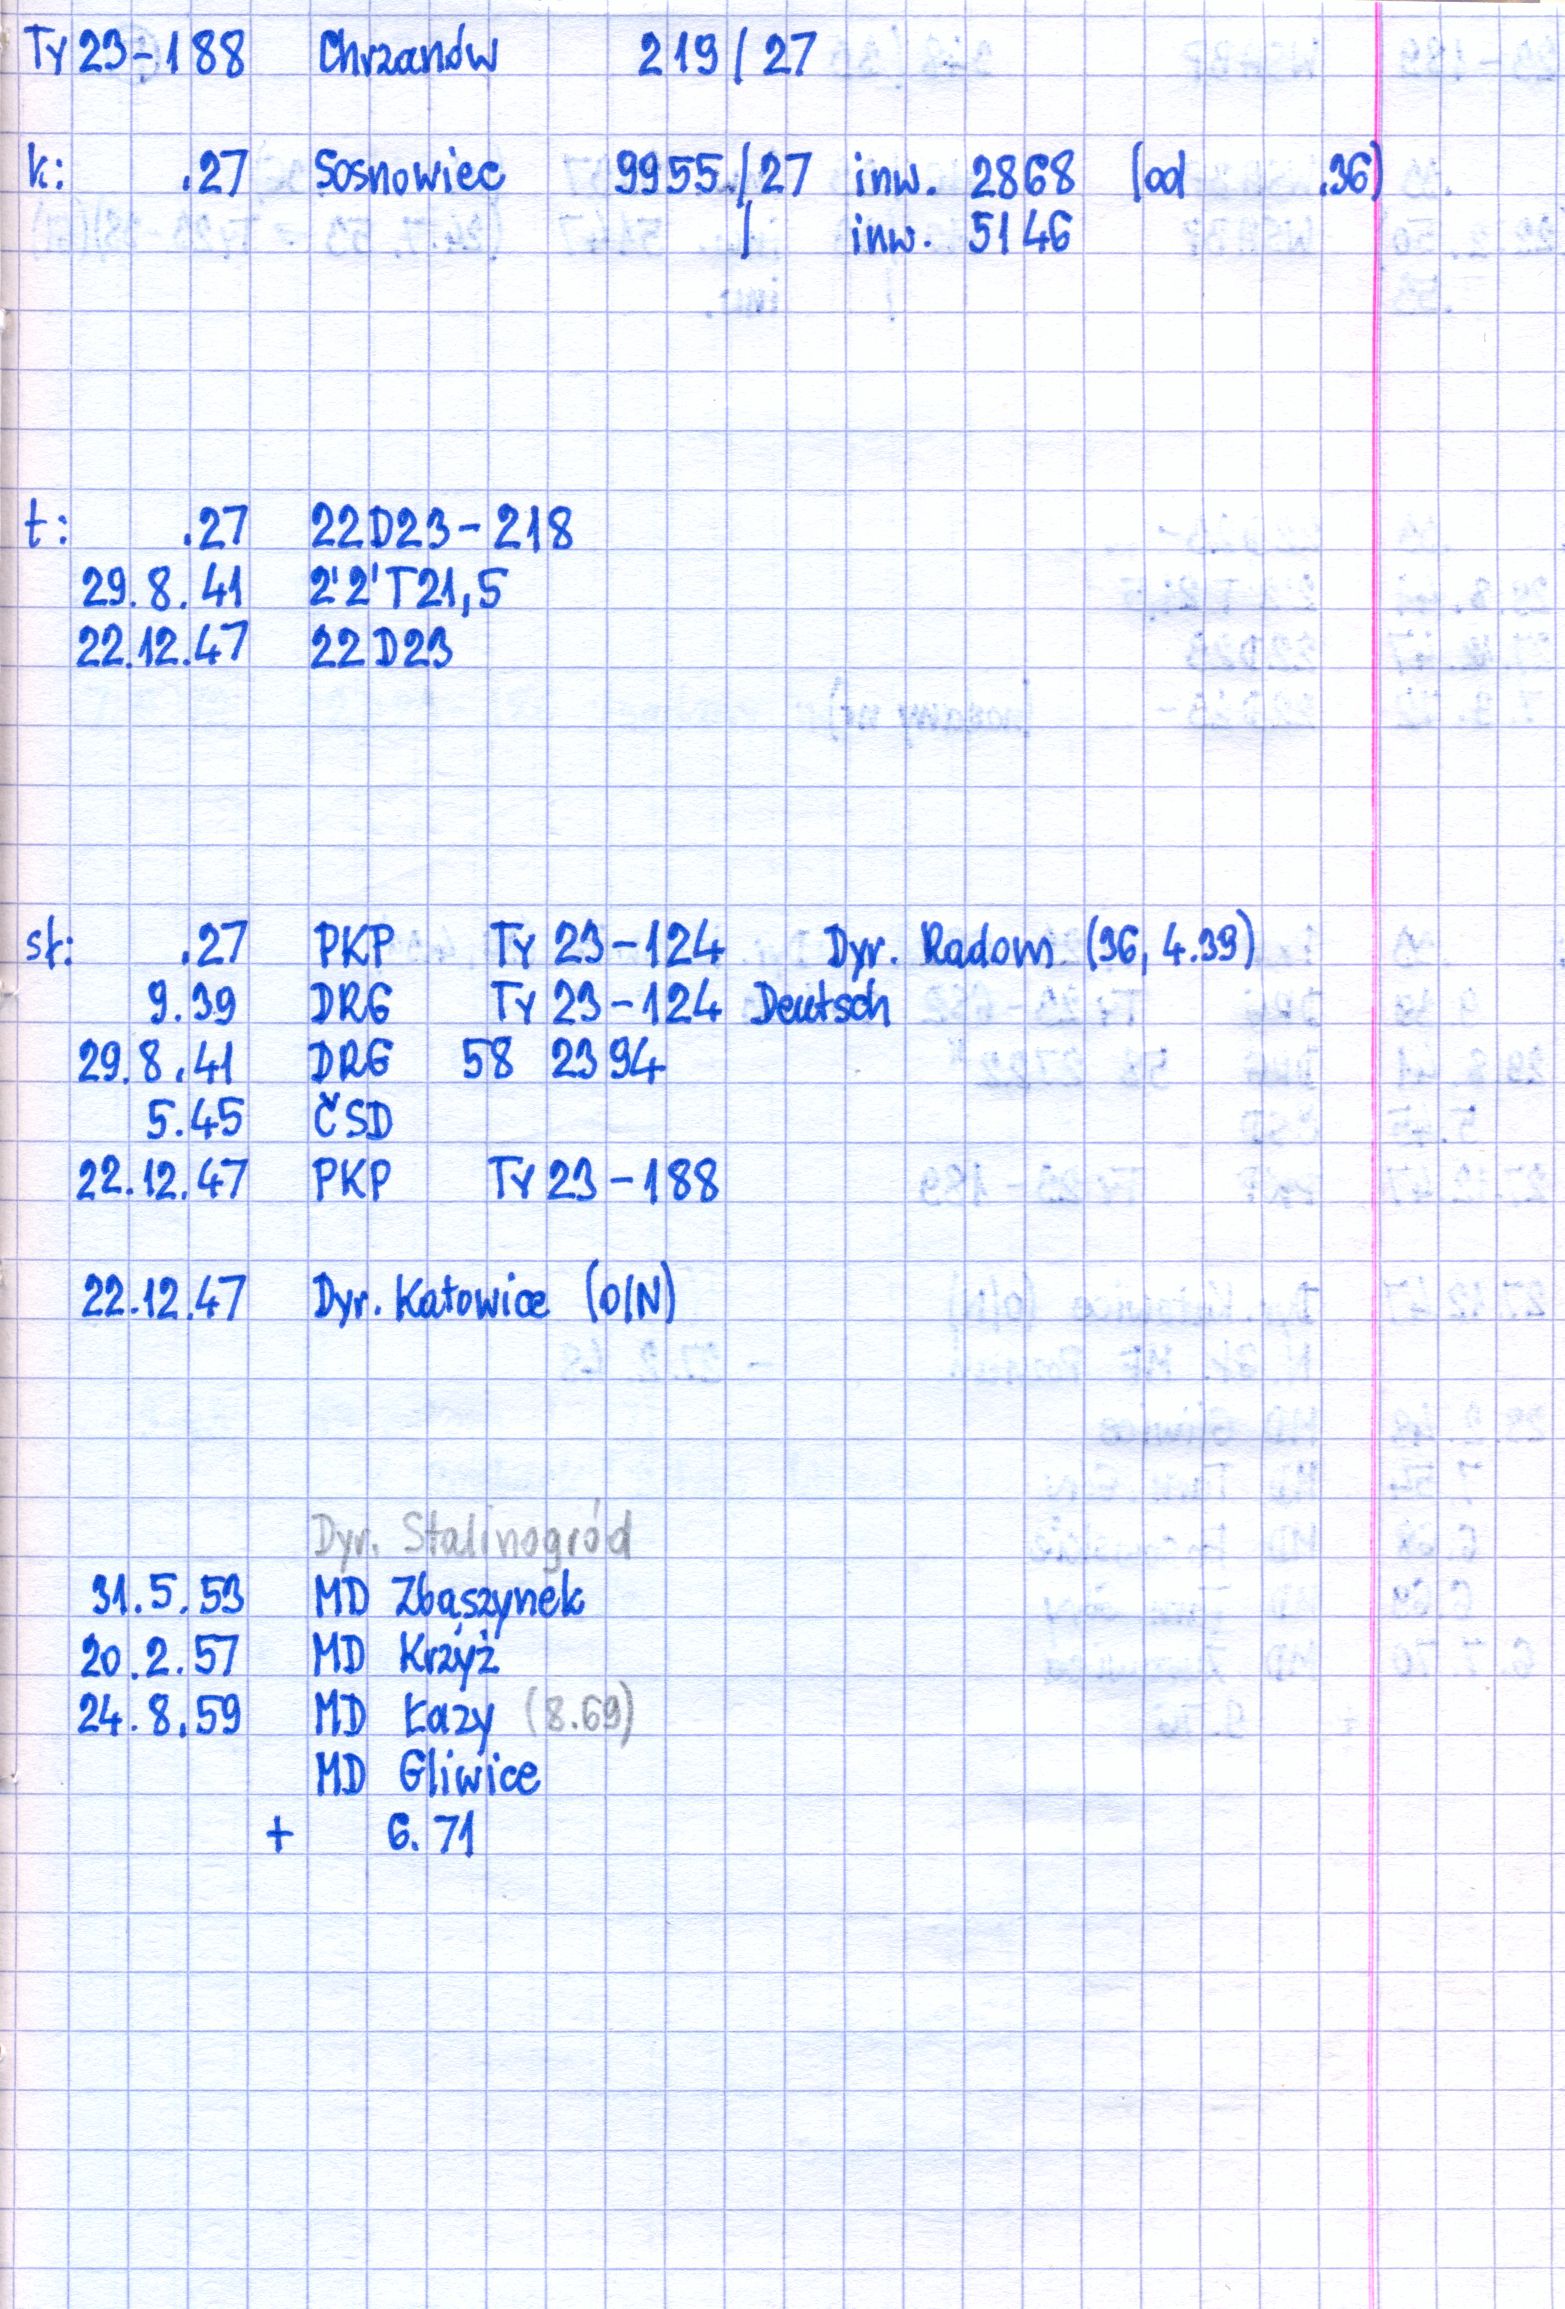 Ty 23-188 Chrzanów 219/27
k: .27 Sosnowiec 9955/27 inw. 2868 (od .36)
/ inw. 5146
t: .27 22D23-218
29.8.41 2'2'T21,5
22.12.47 22D23
sł: .27 PKP Ty 23-124 Dyr. Radom (36, 4.39)
9.39 DRG Ty 23-124 Deutsch
29.8.41 DRG 58 2394
5.45 ČSD
22.12.47 PKP Ty 23-188
22.12.47 Dyr. Katowice (O/N)
Dyr. Stalinogród
31.5.53 MD Zbąszynek
20.2.57 MD Krzyż
24.8.59 MD Łazy (8.69)
MD Gliwice
+ 6.71